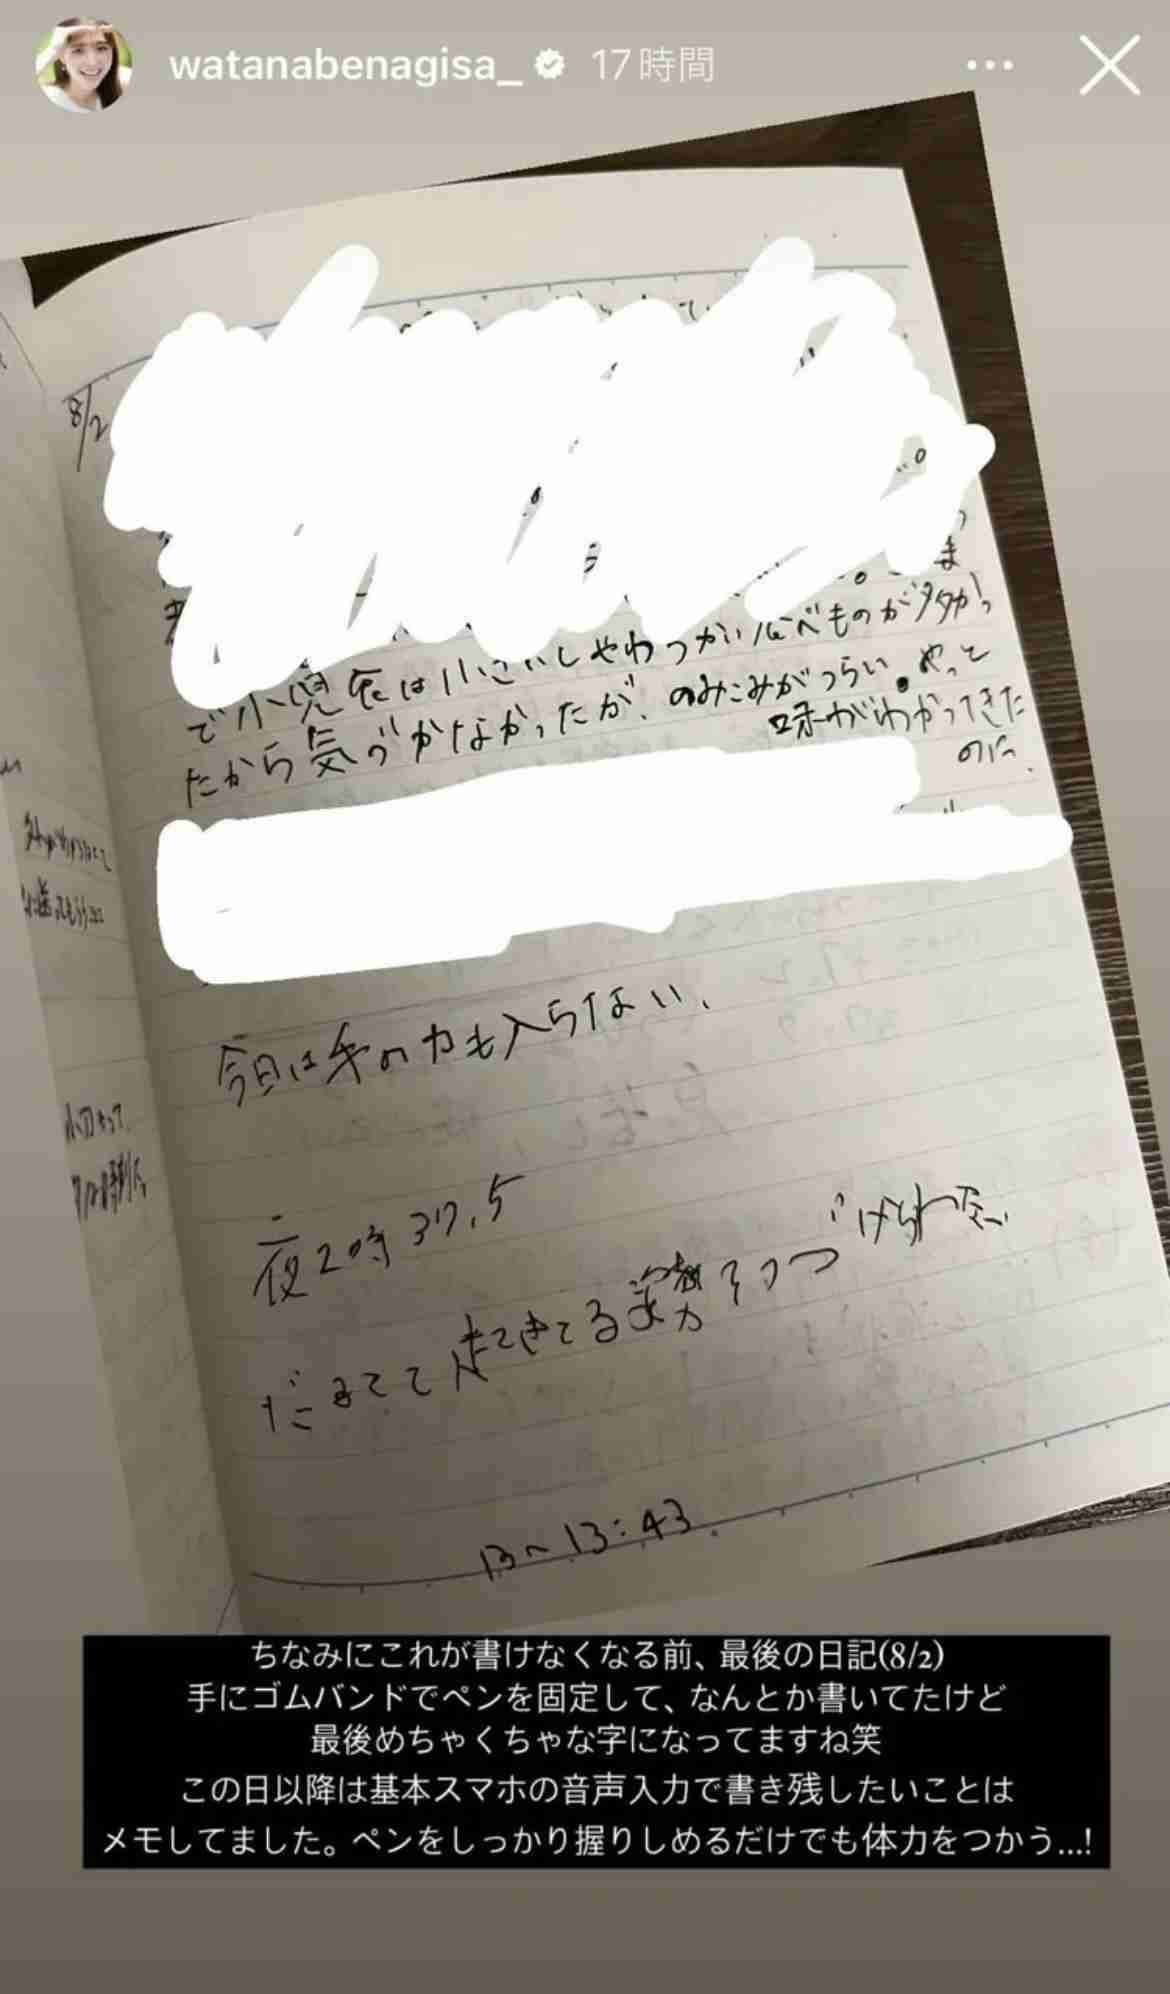 watanabenagisa_ 17時間
8/2
ま
で小児食は小さいしやわらかい食べものが多かっ
たから気づかなかったが、のみこみがつらい。やっと
味がわかってきた
のに、
今日は手の力も入らない、
夜2時 37.5
起きてる姿勢
13〜13:43
ちなみにこれが書けなくなる前、最後の日記(8/2)
手にゴムバンドでペンを固定して、なんとか書いてたけど
最後めちゃくちゃな字になってますね笑
この日以降は基本スマホの音声入力で書き残したいことは
メモしてました。ペンをしっかり握りしめるだけでも体力をつかう...!